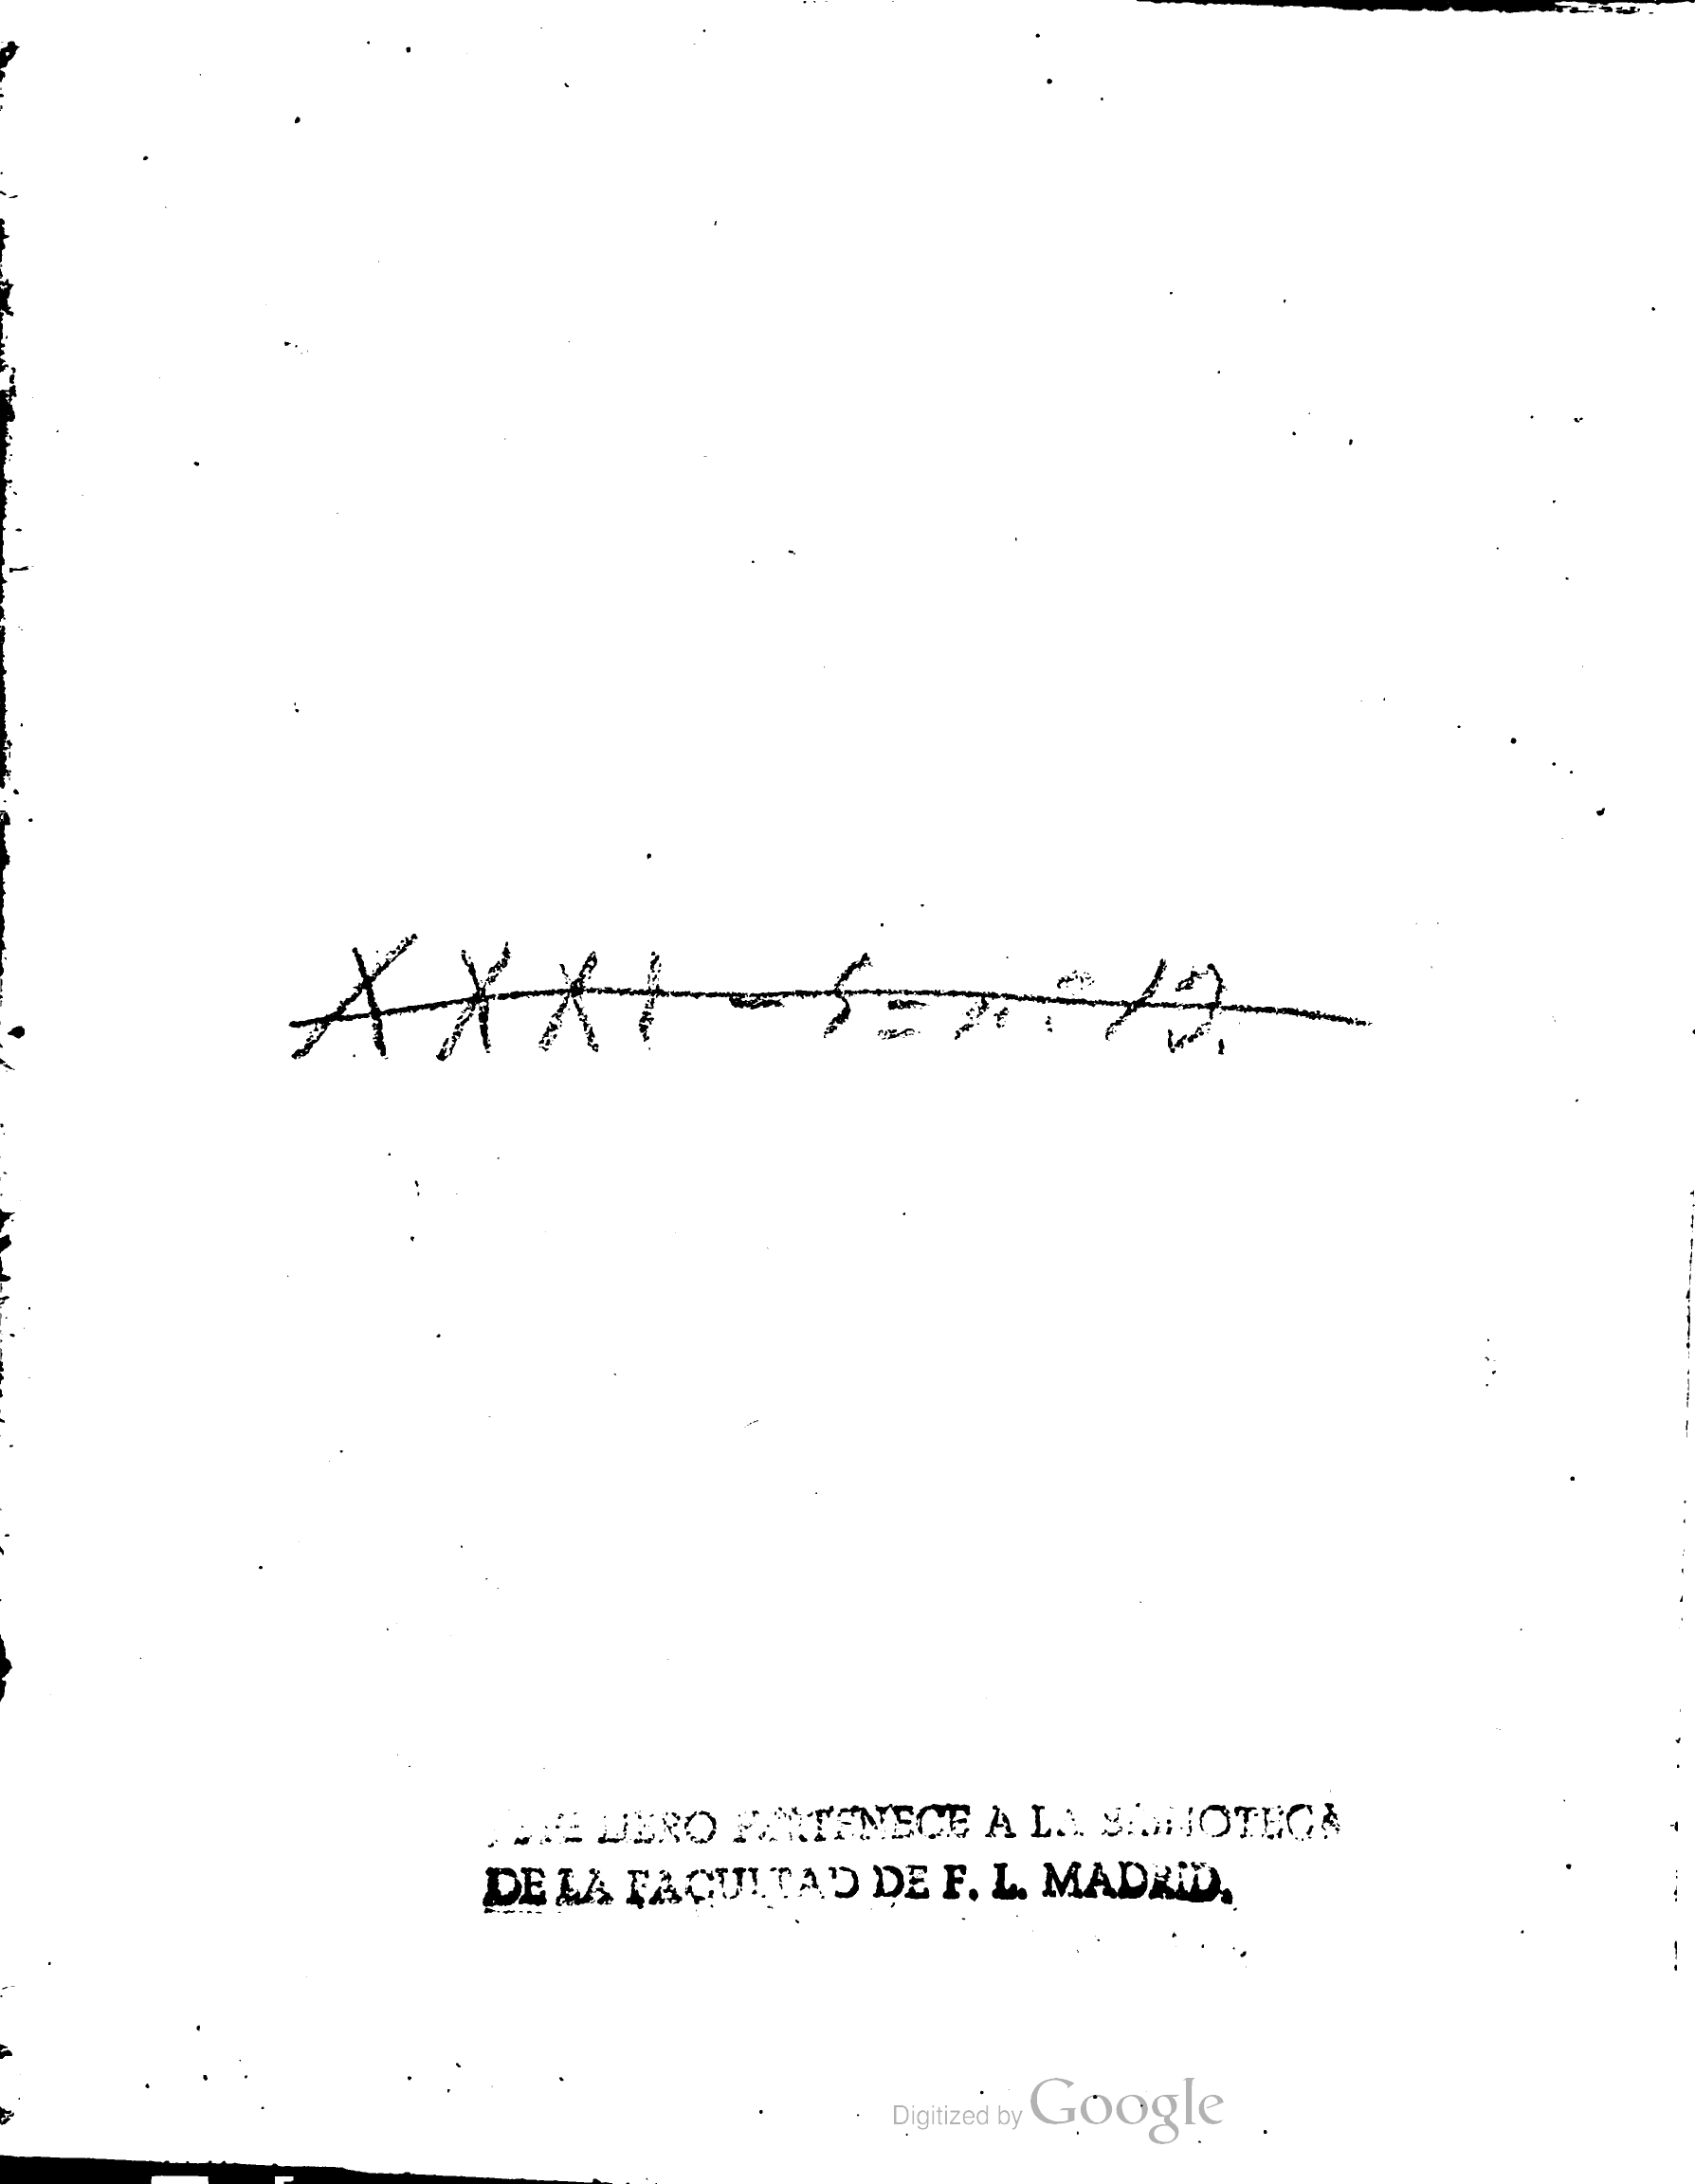 XXXI - 5 = nº 19.
ESTE LIBRO PERTENECE A LA BIBLIOTECA
DE LA FACULTAD DE F. L. MADRID.
Digitized by Google